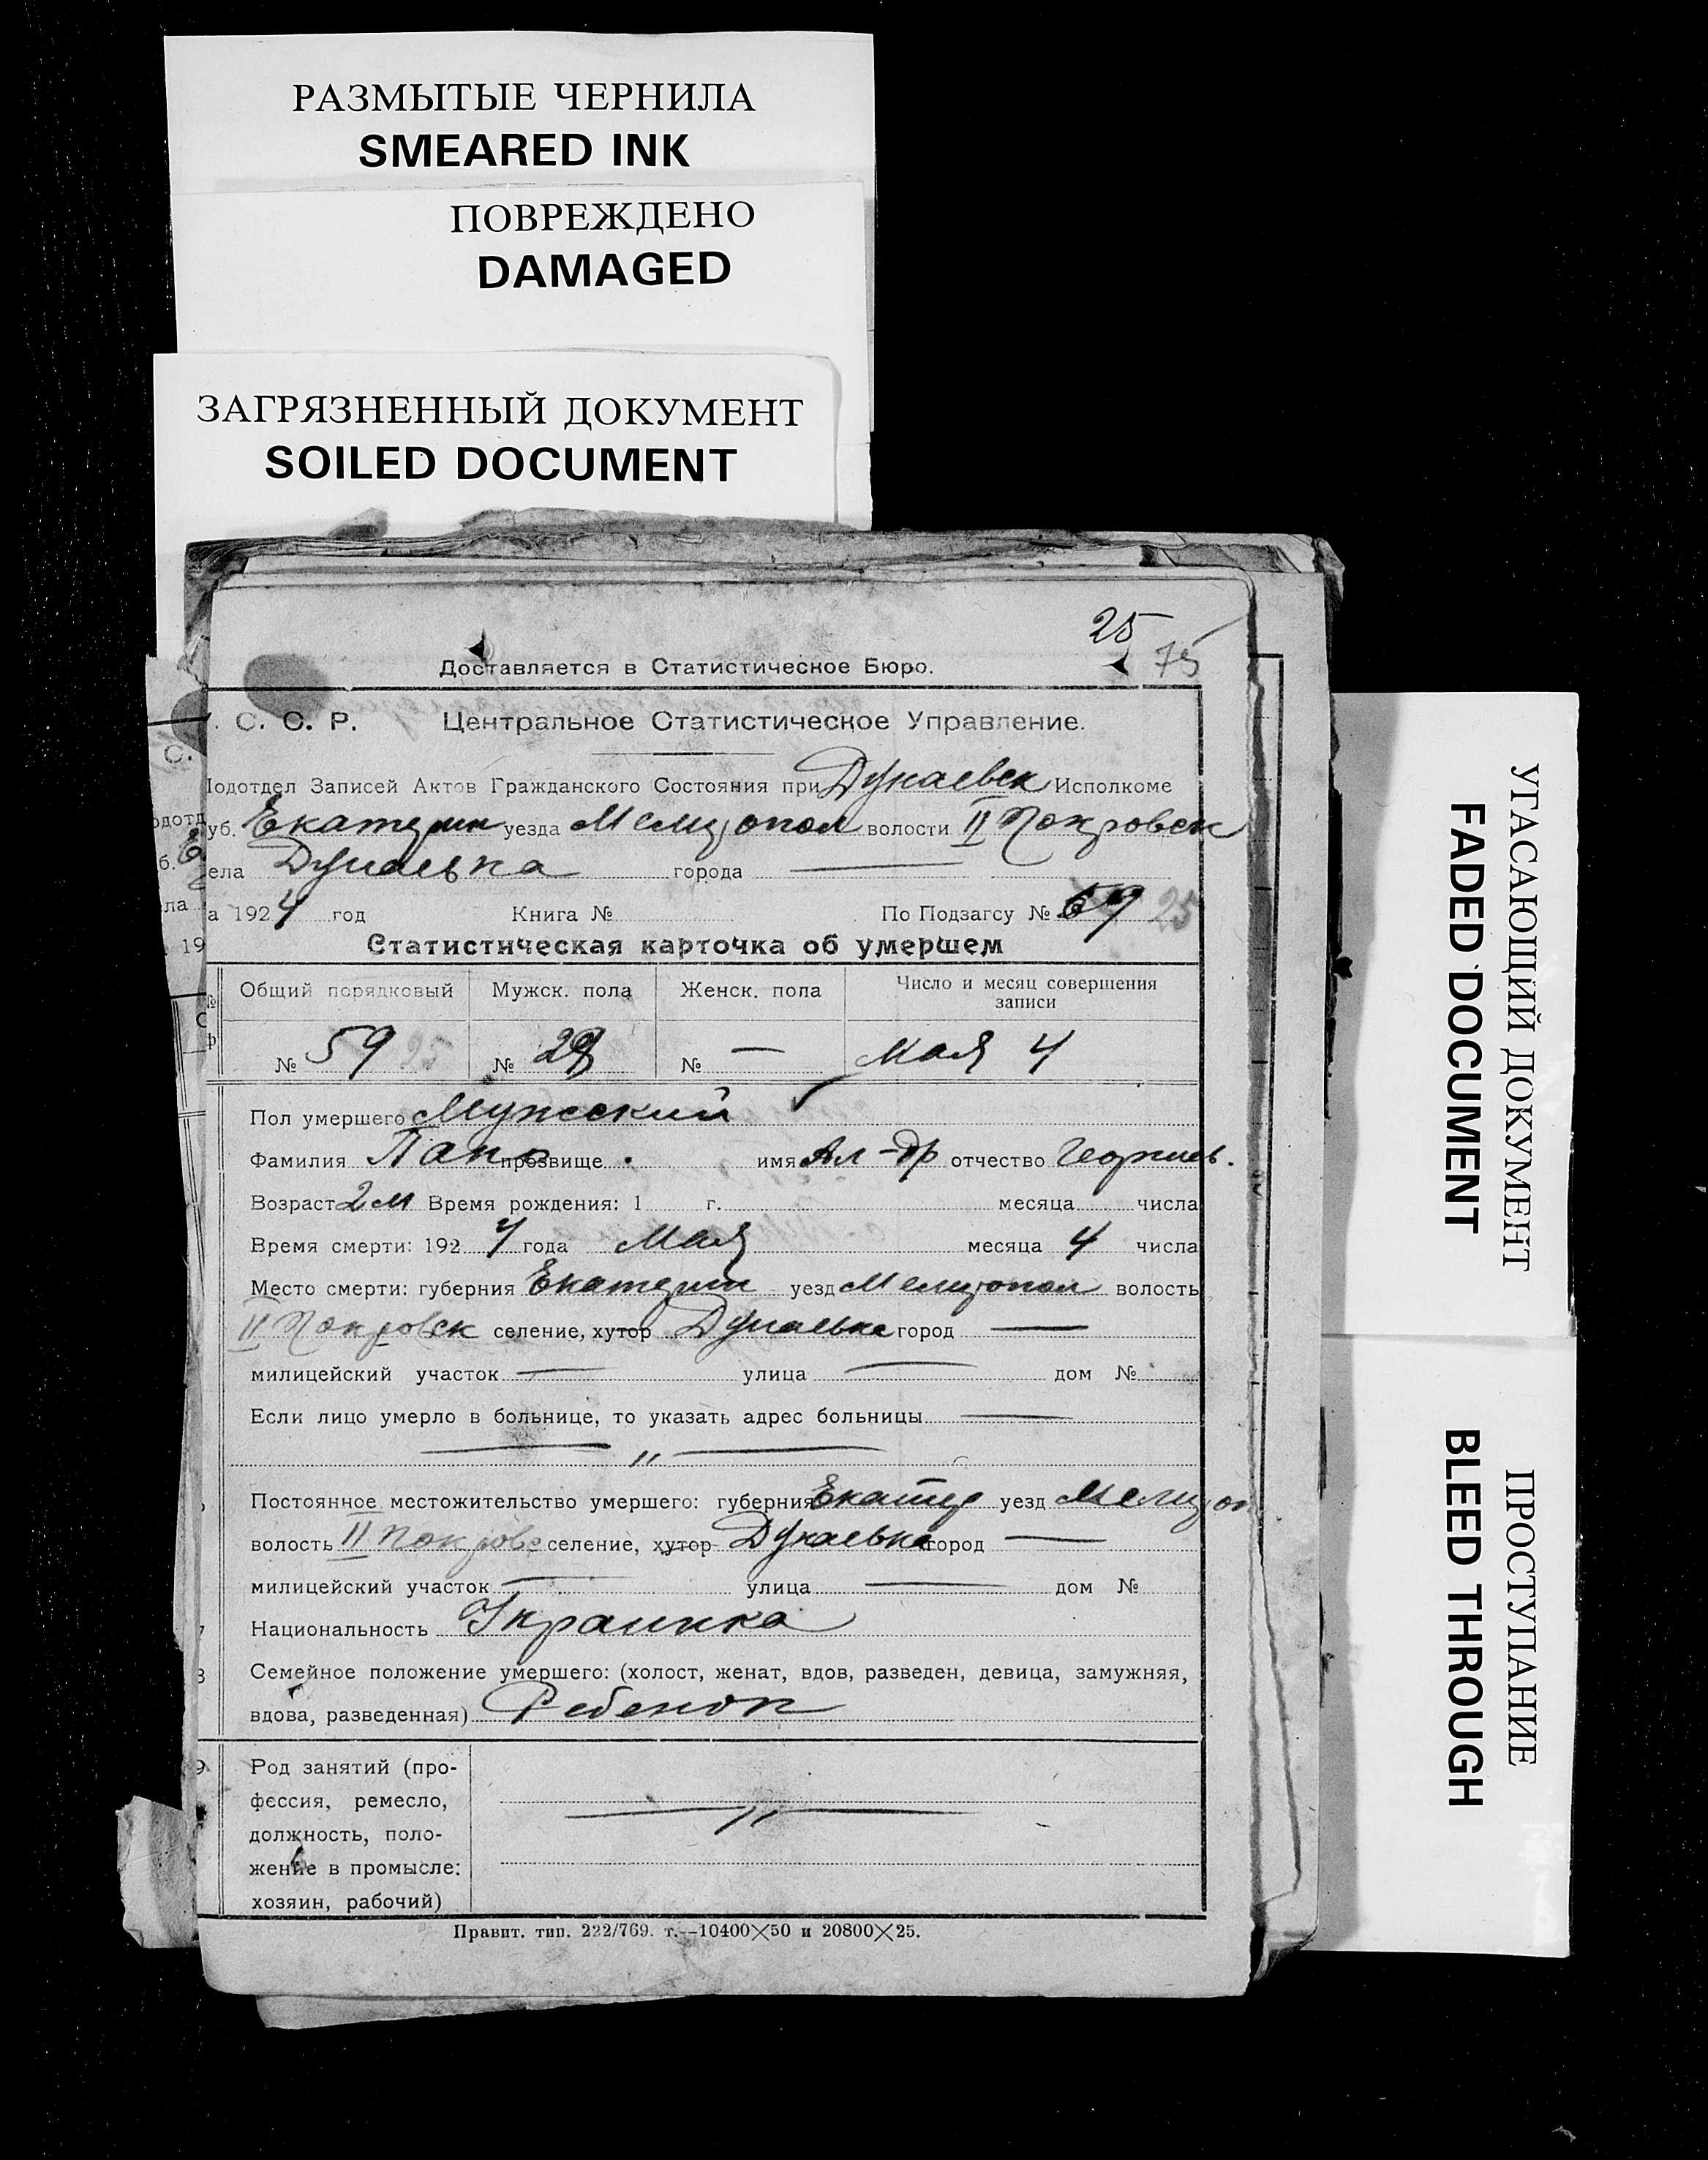 РАЗМЫТЫЕ ЧЕРНИЛА
SMEARED INK
ПОВРЕЖДЕНО
DAMAGED
ЗАГРЯЗНЕННЫЙ ДОКУМЕНТ
SOILED DOCUMENT
25
75
Доставляется в Статистическое Бюро.
. С. С. Р. Центральное Статистическое Управление.
Подотдел Записей Актов Гражданского Состояния при Дунаевск Исполкоме
уб. Екатерин уезда Мелитопол волости II Покровск
ела Дунаевка города —
а 1924 год Книга № По Подзагсу № 59 25
Статистическая карточка об умершем
Общий порядковый Мужск. пола Женск. пола Число и месяц совершения
записи
№ 59 25 № 29 № — Мая 4
Пол умершего Мужский
Фамилия Папо прозвище имя Ал-др отчество Георгиев.
Возраст 2 м Время рождения: 1 г. месяца числа
Время смерти: 1924 года Мая месяца 4 числа
Место смерти: губерния Екатерин уезд Мелитопол волость
II Покровск селение, хутор Дунаевка город —
милицейский участок — улица — дом №
Если лицо умерло в больнице, то указать адрес больницы —
— " —
Постоянное местожительство умершего: губерния Екатер уезд Мелитоп
волость II Покровс селение, хутор Дунаевка город —
милицейский участок — улица — дом №
Национальность Украинка
Семейное положение умершего: (холост, женат, вдов, разведен, девица, замужняя,
вдова, разведенная) Ребенок
Род занятий (про-
фессия, ремесло,
должность, поло-
жение в промысле:
хозяин, рабочий)
— " —
Правит. тип. 222/769. т.—10400×50 и 20800×25.
УГАСАЮЩИЙ ДОКУМЕНТ
FADED DOCUMENT
ПРОСТУПАНИЕ
BLEED THROUGH